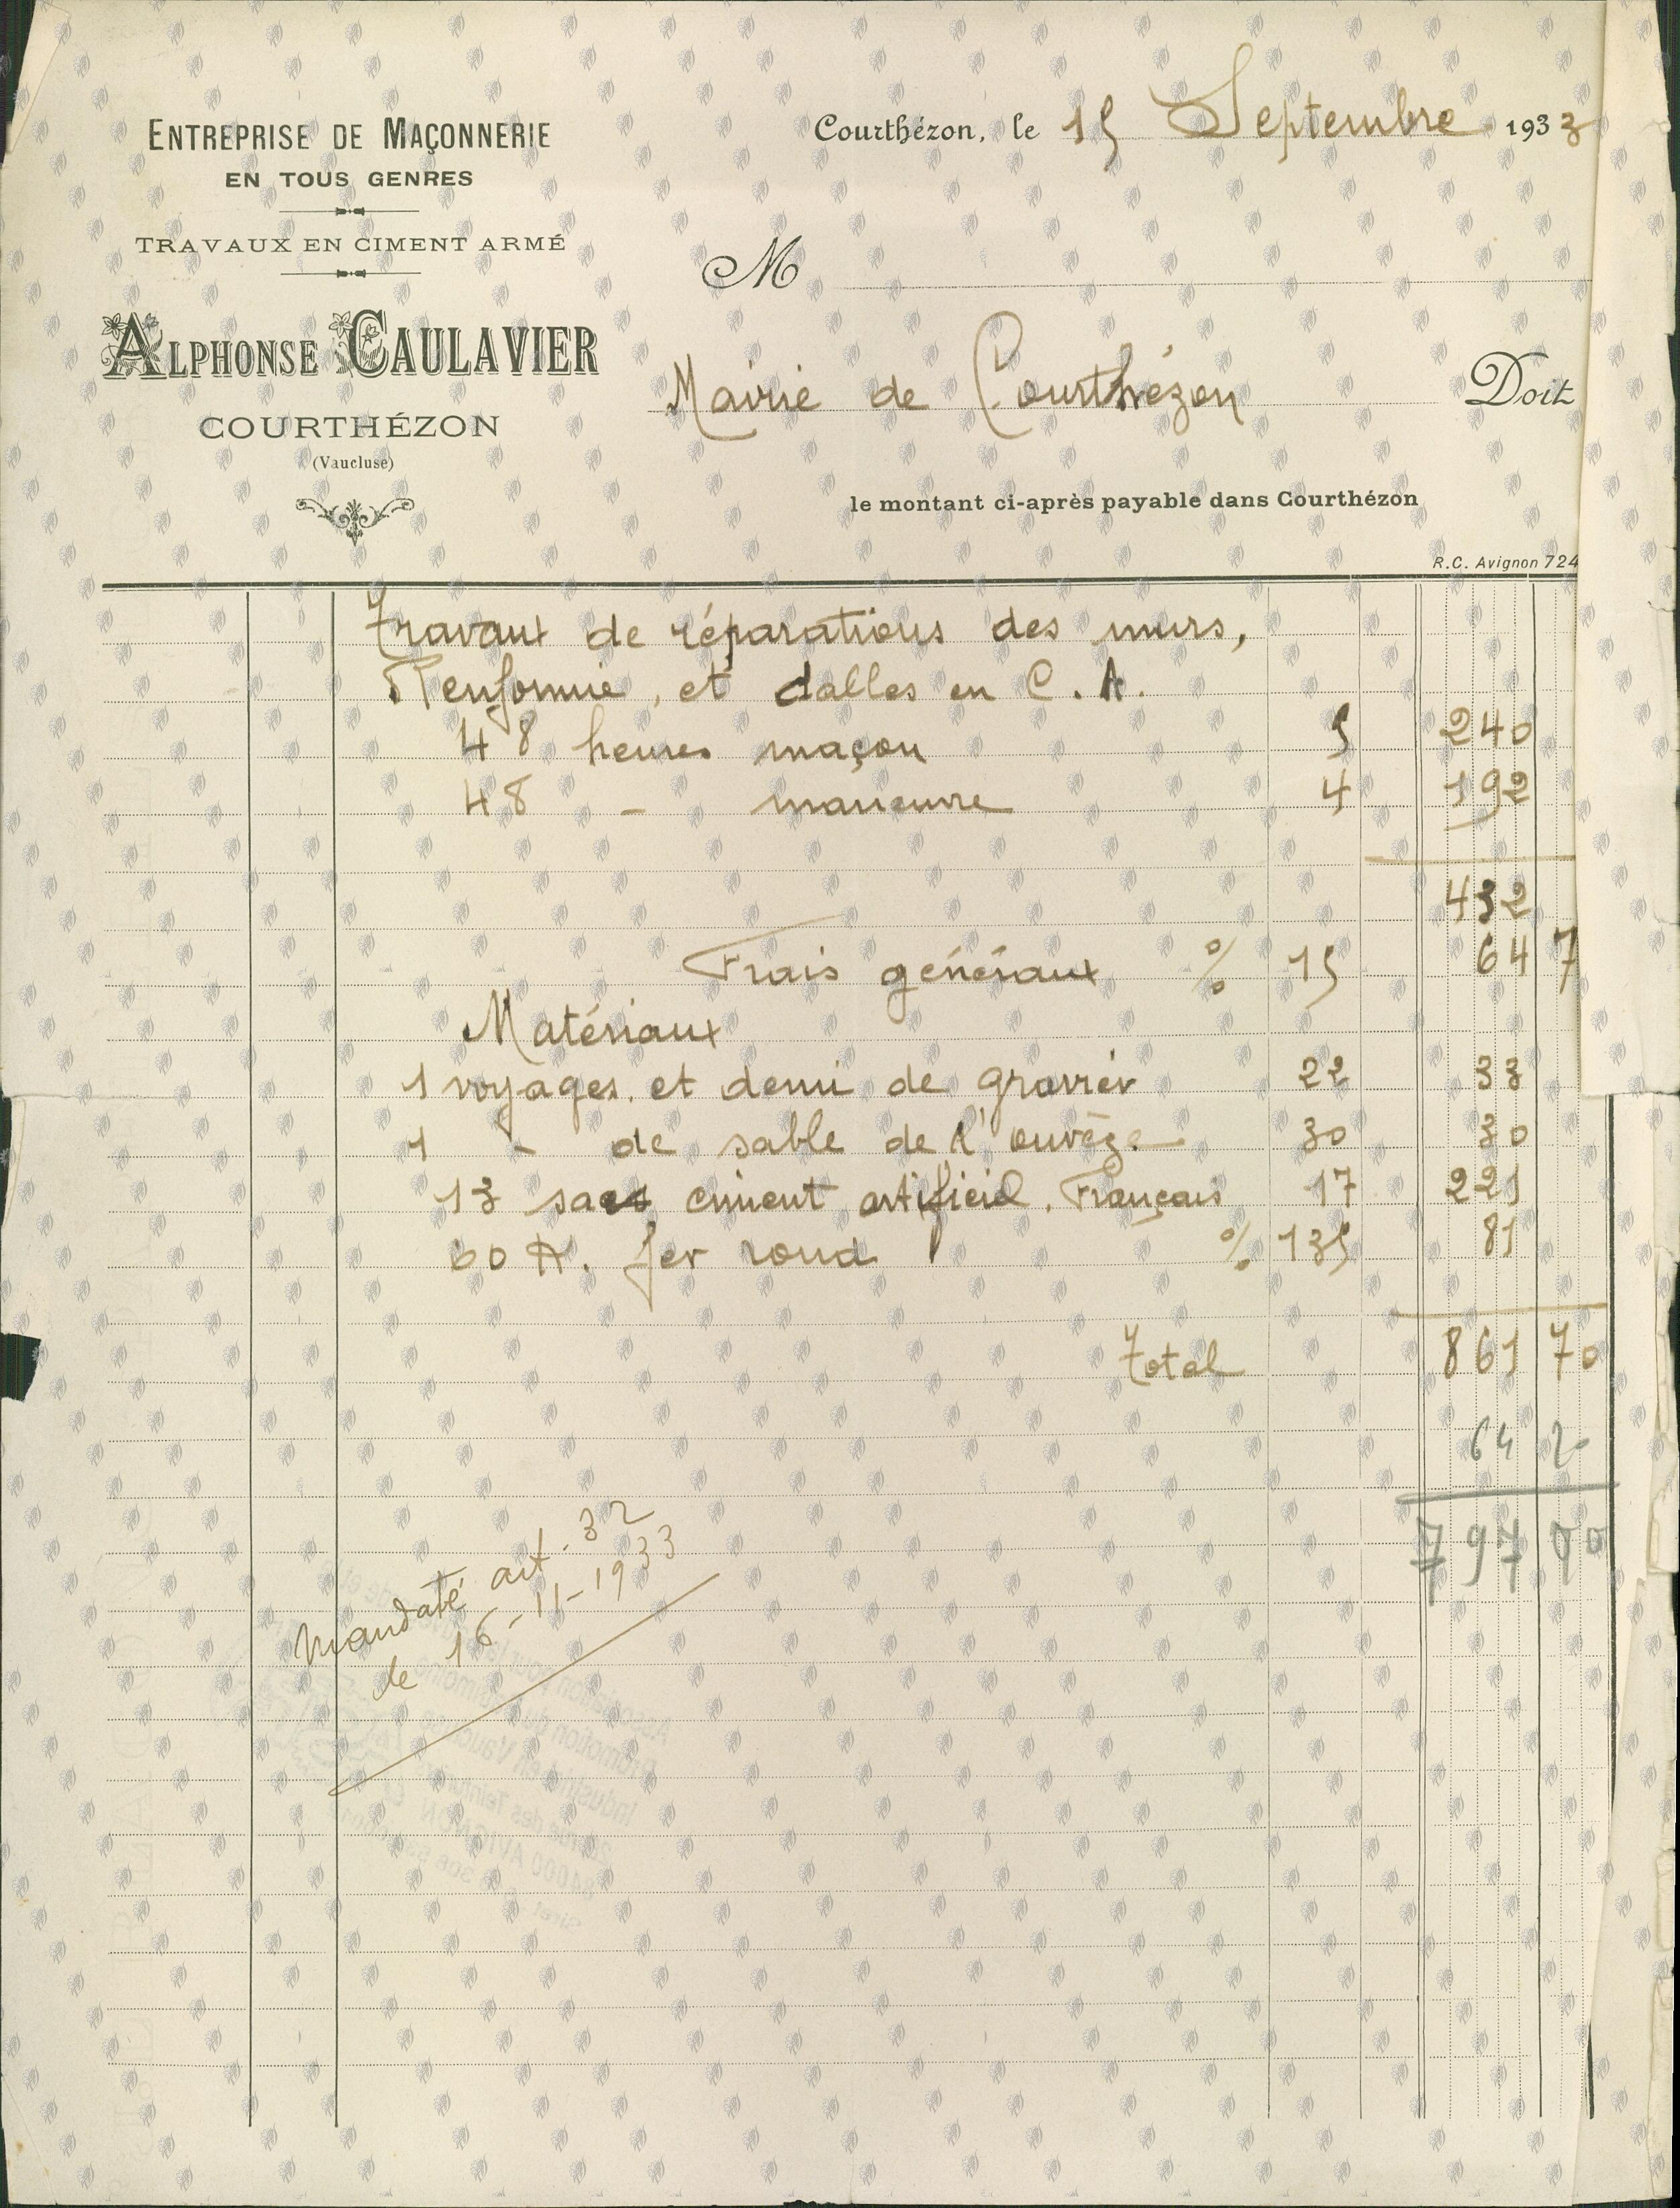 ENTREPRISE DE MAÇONNERIE
EN TOUS GENRES
TRAVAUX EN CIMENT ARMÉ
ALPHONSE CAULAVIER
COURTHÉZON
(Vaucluse)
Courthézon, le 15 Septembre 1933
M
Mairie de Courthézon Doit
le montant ci-après payable dans Courthézon
R.C. Avignon 724
Travaux de réparations des murs,
et dalles en C. A.
48 heures maçon 5 240
48 - manœuvre 4 192
432
Frais généraux % 15 64 7
Matériaux
1 voyages et demi de gravier 22 33
1 - de sable de l'ouvèze 30 30
13 sacs ciment artificiel Français 17 221
60 K. fer rond % 135 81
Total 861 70
64 2
797 00
Mandaté art. 32
de 16-11-1933
Association pour la
Promotion du Patrimoine
Industriel en Vaucluse
des Teinturiers
84000 AVIGNON